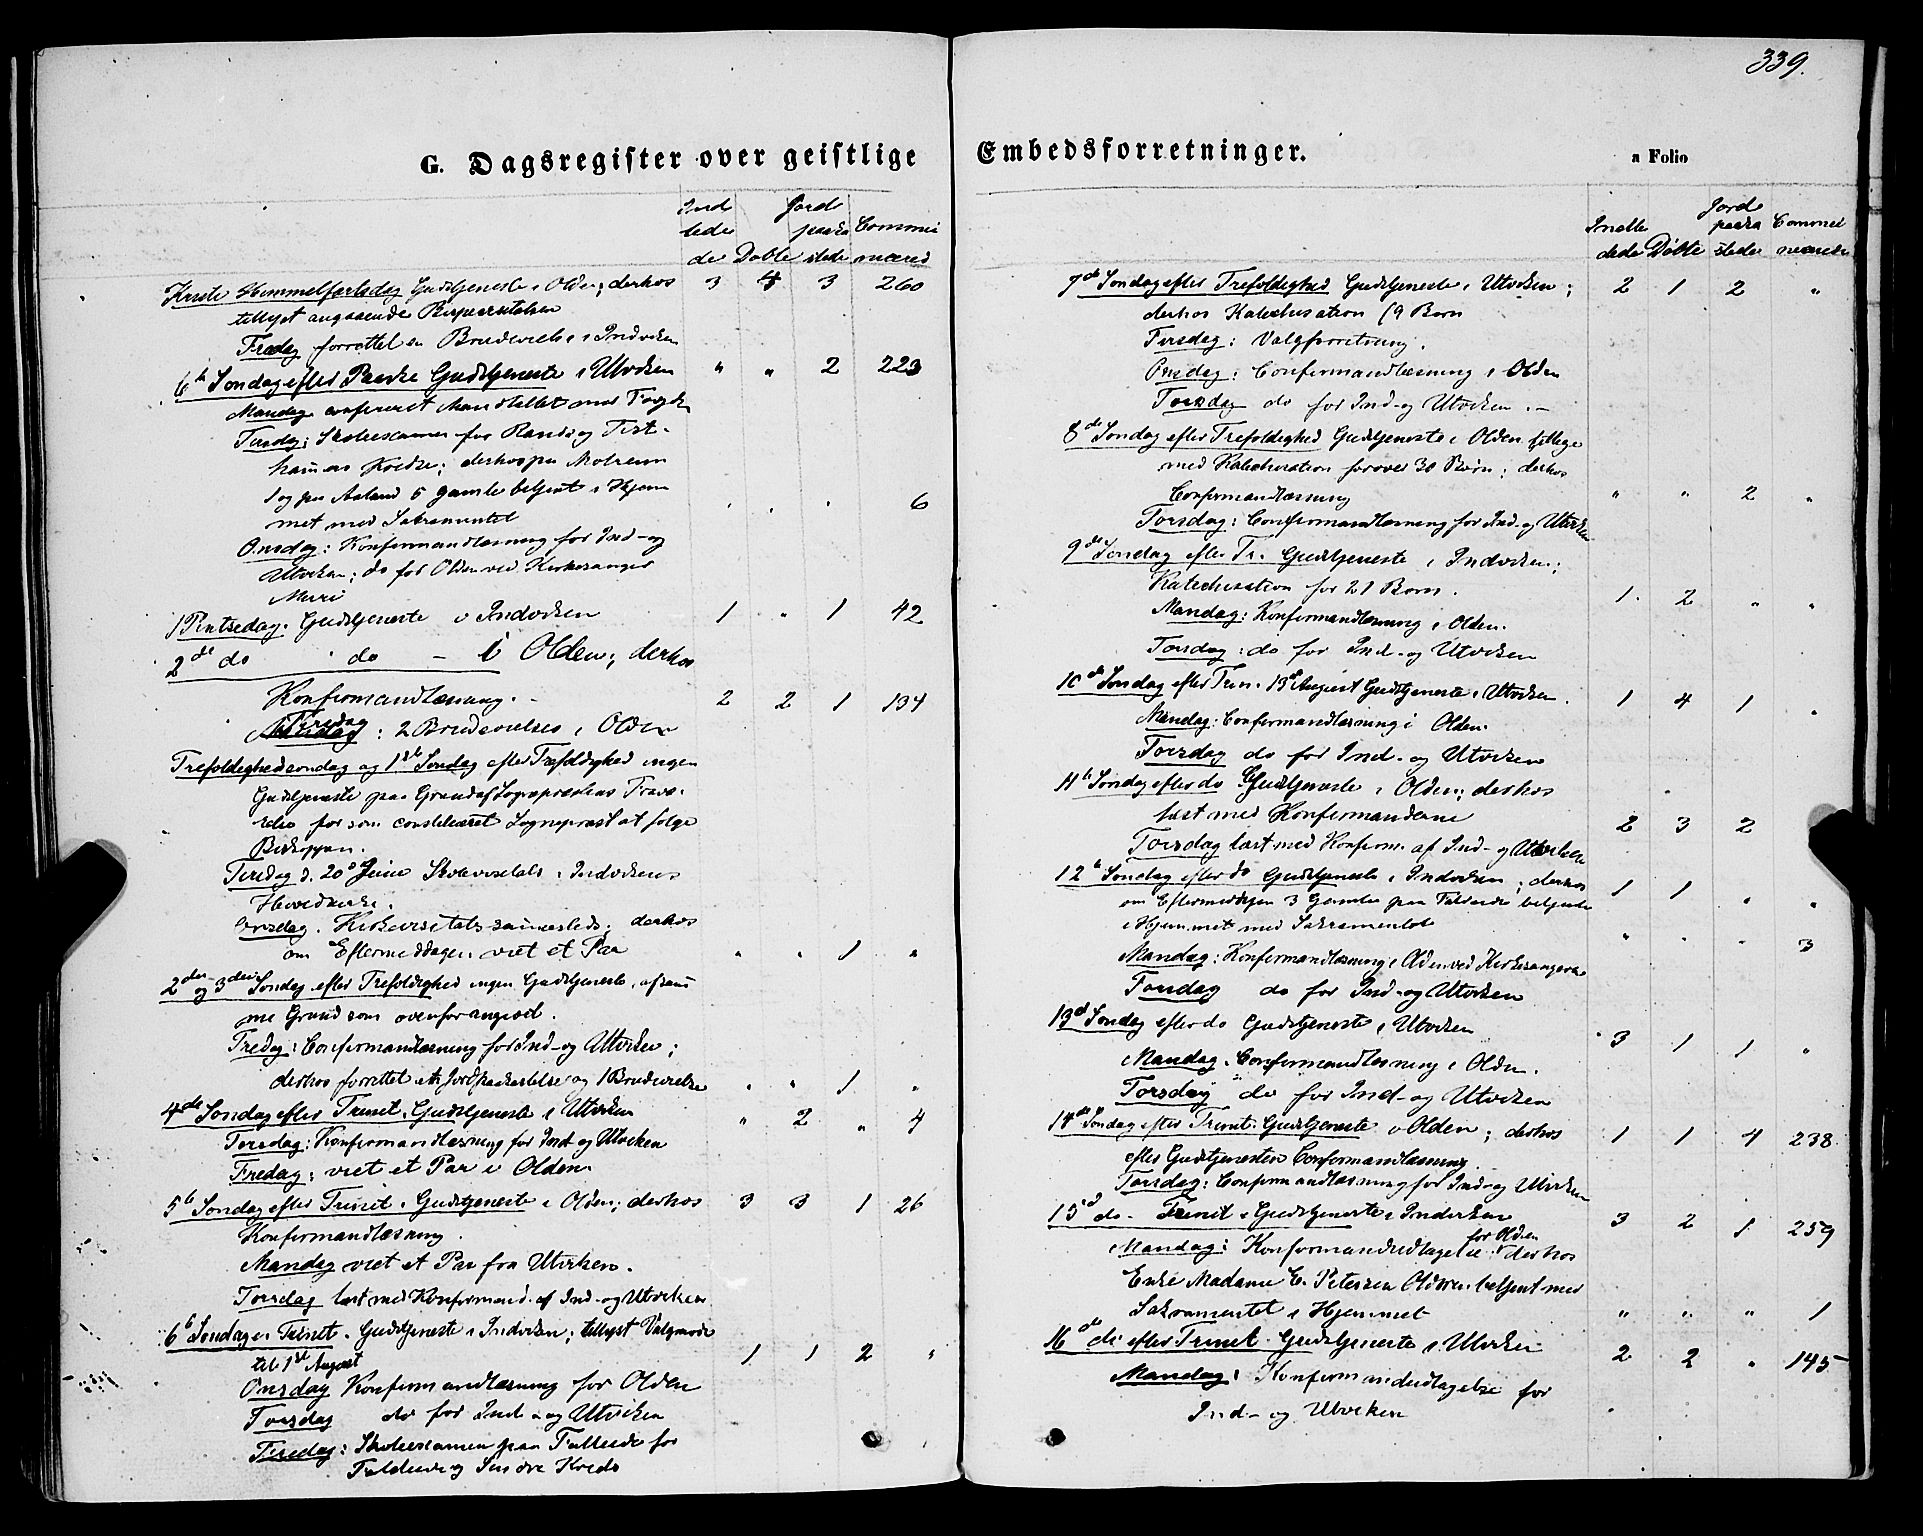 339.
G. Dagsregister over geistlige Embedsforretninger.
a Folio
Ind Jord
lede paaka Commu
de Døbte stede nicered
Kristi Himmelfartsdag Gudstjeneste i Olden; derhos 3 4 3 260
tillyst angaaende
Fredag forrettet en Brudevielse i Indviken
6te Søndag efter Paaske Gudstjeneste i Utviken " " 2 223
Mandag confereret Mandtallet med Fogden
Tirsdag: Skoleexamen for Rands og Tist-
hammers Kredse; derhos paa
1 og paa Aaland 5 gamle betjent i Hjem
met med Sakramentet 6
Onsdag: Konfirmandlæsning for Ind- og
Utviken; do for Olden ved Kirkesanger
Muri
1 Pintsedag. Gudstjeneste i Indviken 1 " 1 42
2de do do - i Olden; derhos
Konfirmandlæsning. 2 2 1 134
Tirsdag: 2 Brudevielser i Olden
Trefoldighedssøndag og 1ste Søndag efter Trefoldighed ingen
Gudstjeneste paa Grund af Sognepræstens Fravæ-
relse for som constitueret Sogneprest at følge
Biskoppen.
Tirsdag d. 20de Juni Skolevisitats i Indvikens
Hovedkirke.
Onsdag. Kirkevisitats sammesteds; derhos
om Eftermiddagen viet et Par " " 1 "
2den og 3die Søndag efter Trefoldighed ingen Gudstjeneste, af sam
me Grund som ovenfor angivet.
Fredag: Confirmandlæsning for Ind- og Utviken;
derhos forrettet en Jordpaakastelse og 1 Brudevielse " " 1 "
4de Søndag efter Trinit. Gudstjeneste i Utviken " 2 " 4
Torsdag: Konfirmandlæsning for Ind- og Utviken
Fredag: viet et Par i Olden
5te Søndag efter Trinit. Gudstjeneste i Olden; derhos 3 3 1 26
Konfirmandlæsning.
Mandag viet et Par fra Utviken.
Torsdag læst med Konfirmand. af Ind- og Utviken
6te Søndag e. Trinit. Gudstjeneste i Indviken; tillyst Valgmøde
til 1ste August 1 1 2 "
Onsdag Konfirmandlæsning for Olden
Torsdag do for Ind- og Utviken
Tirsdag: Skoleexamen paa for
og Søndre Kreds
Indle Jord
paaka Commu
dede Døbte stede nicerede
7de Søndag efter Trefoldighed Gudstjeneste i Utviken; 2 1 2 "
derhos Katechisation (9 Børn
Tirsdag: Valgforretning.
Onsdag: Confirmandlæsning i Olden
Torsdag do for Ind- og Utviken.-
8de Søndag efter Trefoldighed Gudstjeneste i Olden tillige
med Katechisation for over 30 Børn; derhos
Confirmandlæsning " " 2 "
Torsdag: Confirmandlæsning for Ind- og Utviken
9de Søndag efter Tr. Gudstjeneste i Indviken;
Katechisation for 21 Børn. 1. 2 " "
Mandag: Konfirmandlæsning i Olden.
Torsdag: do for Ind- og Utviken
10de Søndag efter Trin. 13de August Gudstjeneste i Utviken. 1 4 1 "
Mandag: Confirmandlæsning i Olden.
Torsdag do for Ind- og Utviken
11te Søndag efter do Gudstjeneste i Olden; derhos
læst med Konfirmanderne 2 3 2
Torsdag læst med Konfirm. af Ind- og Utviken
12te Søndag efter do Gudstjeneste i Indviken; derhos 1 1 " "
om Eftermiddagen 3 Gamle paa betjente
i Hjemmet med Sakramentet " " " 3
Mandag: Konfirmandlæsning i Olden ved Kirkesangeren
Torsdag do for Ind- og Utviken
13de Søndag efter do Gudstjeneste i Utviken 3 1 1 "
Mandag. Confirmandlæsning i Olden.
Torsdag do for Ind- og Utviken
14de Søndag efter Trinit. Gudstjeneste i Olden; derhos 1 1 4 238
efter Gudstjenesten Confirmandlæsning.
Torsdag: Confirmandlæsning for Ind- og Utviken
15de do. Trinit. Gudstjeneste i Indviken 3 2 1 259
Mandag: Konfirmandudtagelse for Olden derhos
Enke Madame C. Petersen Olden betjent med
Sakramentet i Hjemmet " " " 1
16de do efter Trinit. Gudstjeneste i Utviken 2 2 " 145
Mandag: Konfirmandudtagelse for
Ind- og Utviken